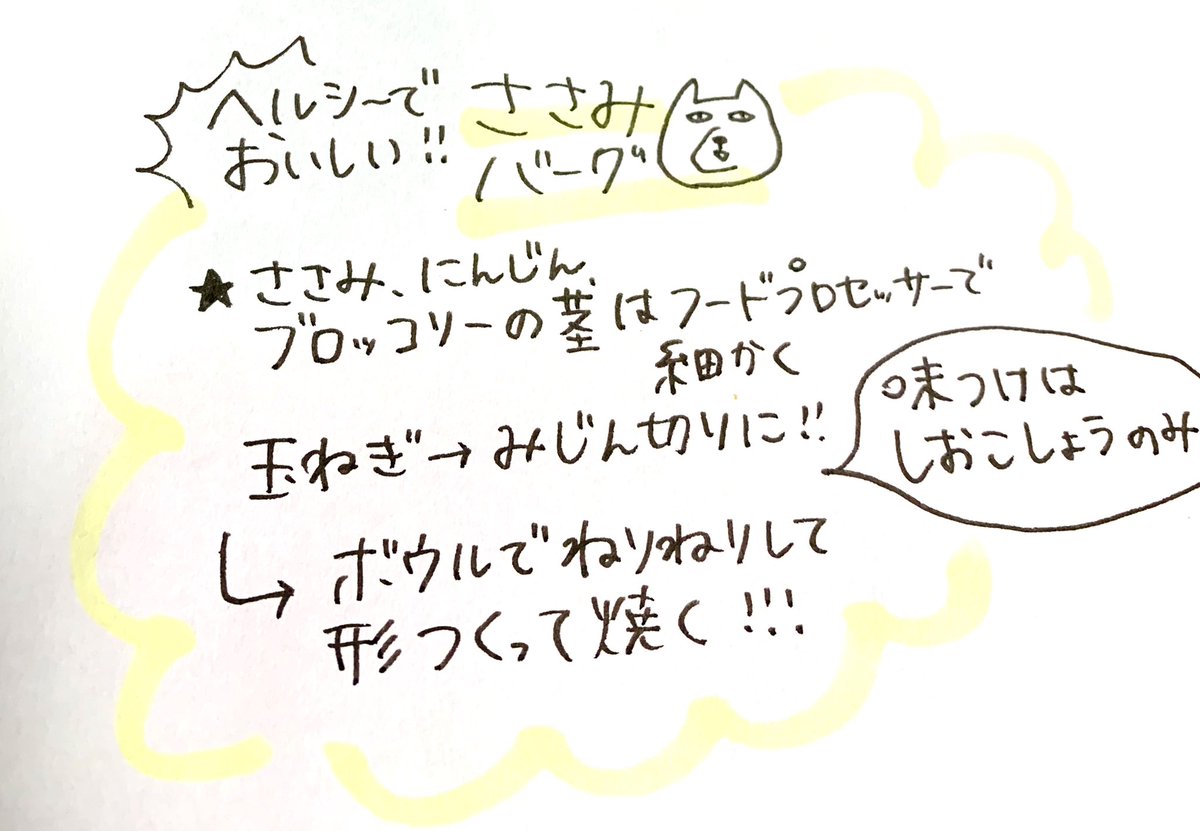 ヘルシーで
おいしい!!
ささみ
バーグ
★ささみ、にんじん、
ブロッコリーの茎はフードプロセッサーで
細かく
玉ねぎ→みじん切りに!!
味つけは
しおこしょうのみ
↳ボウルでねりねりして
形つくって焼く!!!